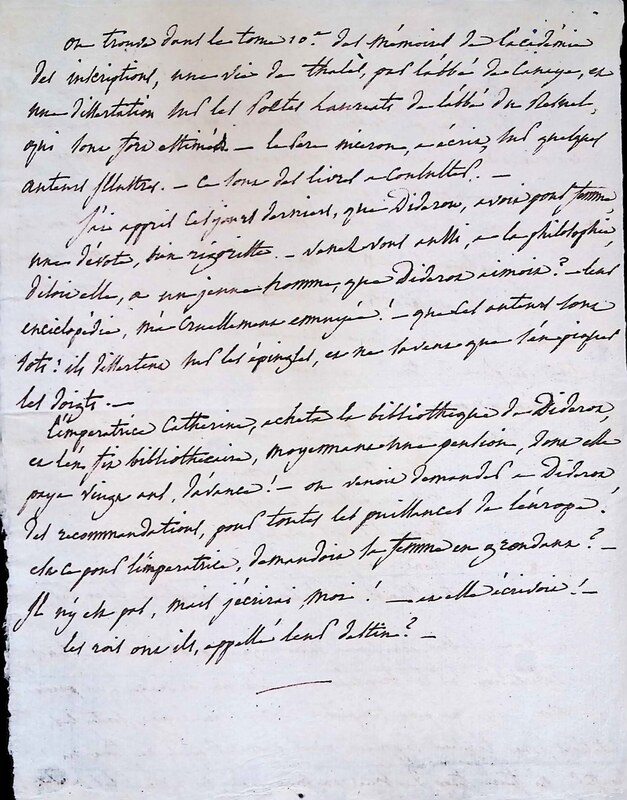 on trouve dans le tome 10.e des mémoires de l'académie
des inscriptions, une vie de thalès, par l'abbé de canaye, et
une dissertation sur les poëtes laureats de l'abbé du resnel,
qui sont fort estimés. — le pere niceron, a écrit, sur quelques
auteurs illustres. — ce sont des livres a consulter. —
j'ai appris ces jours derniers, que Diderot, avoit pour femme
une dévote, bien — venez vous aussi, a la philosophie,
disoit elle, a un jeune homme, que Diderot aimoit? — leur
enciclopédie, m'a cruellement ennuyée! — que ces auteurs sont
sots! ils dissertent sur les épingles, et ne savent que s'en piquer
les doigts. —
l'imperatrice Catherine, acheta la bibliotheque de Diderot,
et l'en fit bibliothécaire, moyennant une pension, dont elle
paya vingt ans, d'avance! — on venoit demander a Diderot
des recommandations, pour toutes les puissances de l'europe!
est ce pour l'imperatrice, demandoit sa femme en grondant? —
Il n'y est pas, mais j'écrirai, moi! — et elle écrivoit! —
les rois ont ils, appellé leur destin? —